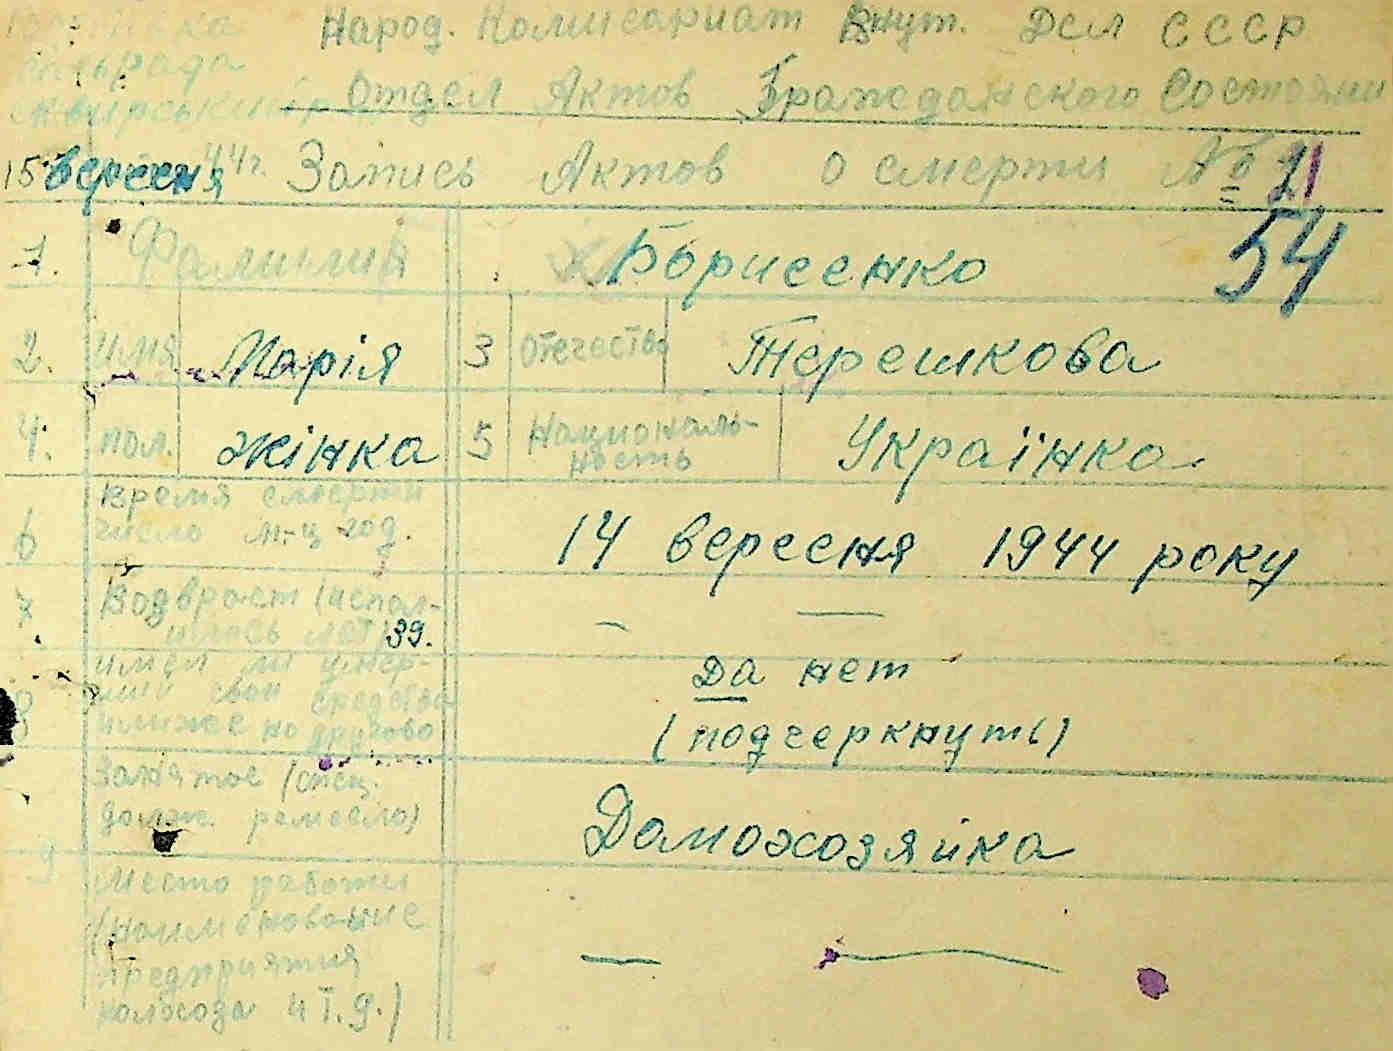 Народ. Комисариат Внут. Дел СССР
Отдел Актов Гражданского Состояния
15 вересня 44 г. Запись Актов о смерти № 21
54
1. Фамилия Борисенко
2. имя Марія 3 Отечество Терешкова
4. пол. жінка 5 Националь-
ность Українка.
6 время смерти
число м-ц год. 14 вересня 1944 року
7 Водвраст (испол-
нилось лет) 39. —
8 имел ли умер-
ший свои средства Да нет
или же на другово (подчеркнуть)
9 Занятое (спец.
долж. ремесло) Домохозяйка
Место работы
(Наименование
предприятия —
колхоза и т.д.)